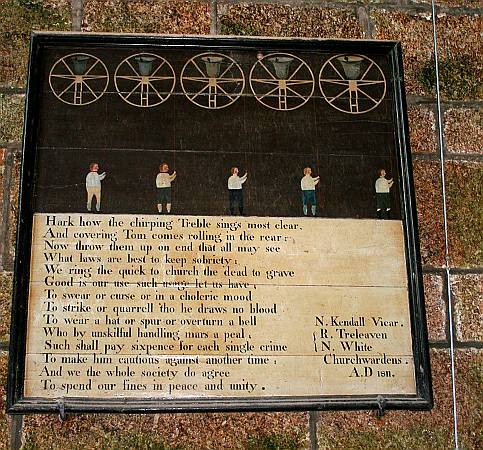 Hark how the chirping Treble sings most clear.
And covering Tom comes rolling in the rear:
Now throw them up on end that all may see
What laws are best to keep sobriety;
We ring the quick to church the dead to grave
Good is our use such usage let us have,
To swear or curse or in a choleric mood
To strike or quarrell tho he draws no blood
To wear a hat or spur or overturn a bell
Who by unskilful handling mars a peal,
Such shall pay sixpence for each single crime
To make him cautious against another time:
And we the whole society do agree
To spend our fines in peace and unity.
N. Kendall Vicar.
R. Treleaven
N. White
Churchwardens.
A.D 1811.